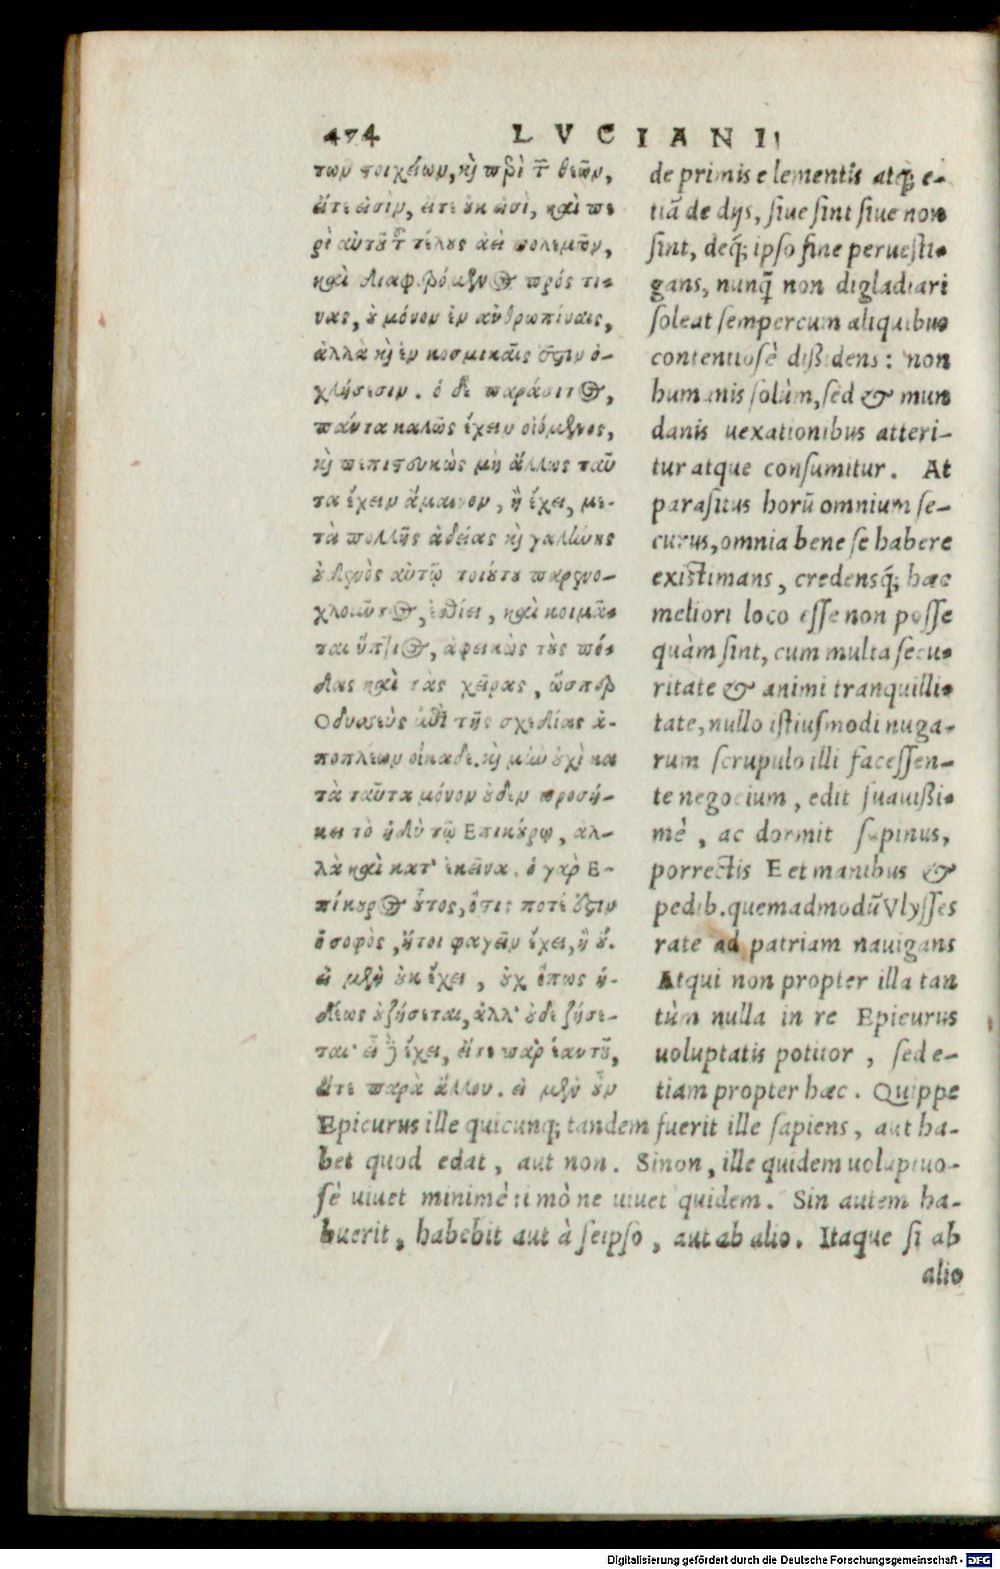 474 LVCIANI
των στοιχείων, κὶ περὶ τ͂ θεῶν,
εἴτε εἰσὶν, εἴτε ὀκ εἰσὶ, καὶ πε
ρὶ αὐτοῦ τ͂ τέλους ἀεὶ πολεμῶν,
καὶ διαφερόμενος πρός τι-
νας, ὀ μόνον ἐν ἀνθρωπίναις,
ἀλλὰ κὶ ἐν κοσμικαῖς ἐστιν ὀ-
χλήσεσιν. ὁ δὲ παράσιτος,
πάντα καλῶς ἔχειν οἰόμενος,
κὶ πεπιστευκὼς μὴ ἄλλως ταῦ
τα ἔχειν ἄμεινον, ἢ ἔχει, με-
τὰ πολλῆς ἀδείας κὶ γαλήνης
ὀδενὸς αὐτῷ τοιούτου παρενο-
χλοῦντος, ἐσθίει, καὶ κοιμᾶ-
ται ὕπτιος, ἀφεικὼς τοὺς πό-
δας καὶ τὰς χεῖρας, ὥσπερ
Οδυσσεὺς ἀπὸ τῆς σχεδίας ἀ-
ποπλέων οἴκαδε. κὶ μὴν ὀχὶ κα
τὰ ταῦτα μόνον ὀδὲν προσή-
κει τὸ ἡδὺ τῷ Επικούρῳ, ἀλ-
λὰ καὶ κατ' ἐκεῖνα. ὁ γὰρ Ε-
πίκουρος οὗτος, ὅστις ποτέ ἐστιν
ὁ σοφὸς, ἤτοι φαγεῖν ἔχει, ἢ ὄ.
εἰ μὲν ὀκ ἔχει, ὀχ ὅπως ἡ-
δέως ὀ ζήσεται, ἀλλ' ὀδὲ ζήσε-
ται· εἰ δὲ ἔχει, εἴτε παρ' ἑαυτοῦ,
εἴτε παρὰ ἄλλου. εἰ μὲν οὖν
de primis elementis atq; e-
tiã de dijs, siue sint siue non
sint, deq́; ipso fine peruesti-
gans, nunq̃ non digladiari
soleat sempercum aliquibus
contentiosè dißidens: non
humanis solùm, sed & mun
danis uexationibus atteri-
tur atque consumitur. At
parasitus horũ omnium se-
curus, omnia bene se habere
existimans, credensq́; hæc
meliori loco esse non posse
quàm sint, cum multa secu-
ritate & animi tranquilli-
tate, nullo istiusmodi nuga-
rum scrupulo illi facessen-
te negocium, edit suauißi-
mè, ac dormit supinus,
porrectis E et manibus &
pedib. quemadmodũ Vlysses
rate ad patriam nauigans
Atqui non propter illa tan
tùm nulla in re Epicurus
uoluptatis potitor, sed e-
tiam propter hæc. Quippe
Epicurus ille quicunq; tandem fuerit ille sapiens, aut ha-
bet quod edat, aut non. Sinon, ille quidem uoluptuo-
sè uiuet minimè: imò ne uiuet quidem. Sin autem ha-
buerit, habebit aut à seipso, aut ab alio. Itaque si ab
alio
Digitalisierung gefördert durch die Deutsche Forschungsgemeinschaft - DFG